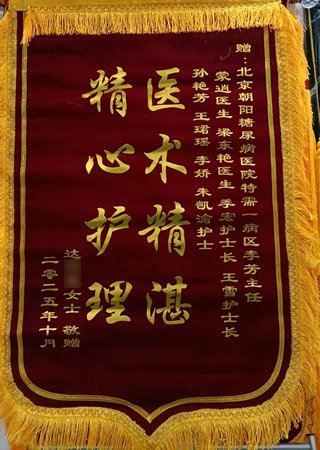 赠：北京朝阳糖尿病医院特需一病区李芳主任
蒙逍医生 梁东艳医生 季宏护士长 王雪护士长
孙艳芳 王珺瑶 李娇 朱凯渝护士
医术精湛
精心护理
达 女士 敬赠
二零二五年十月